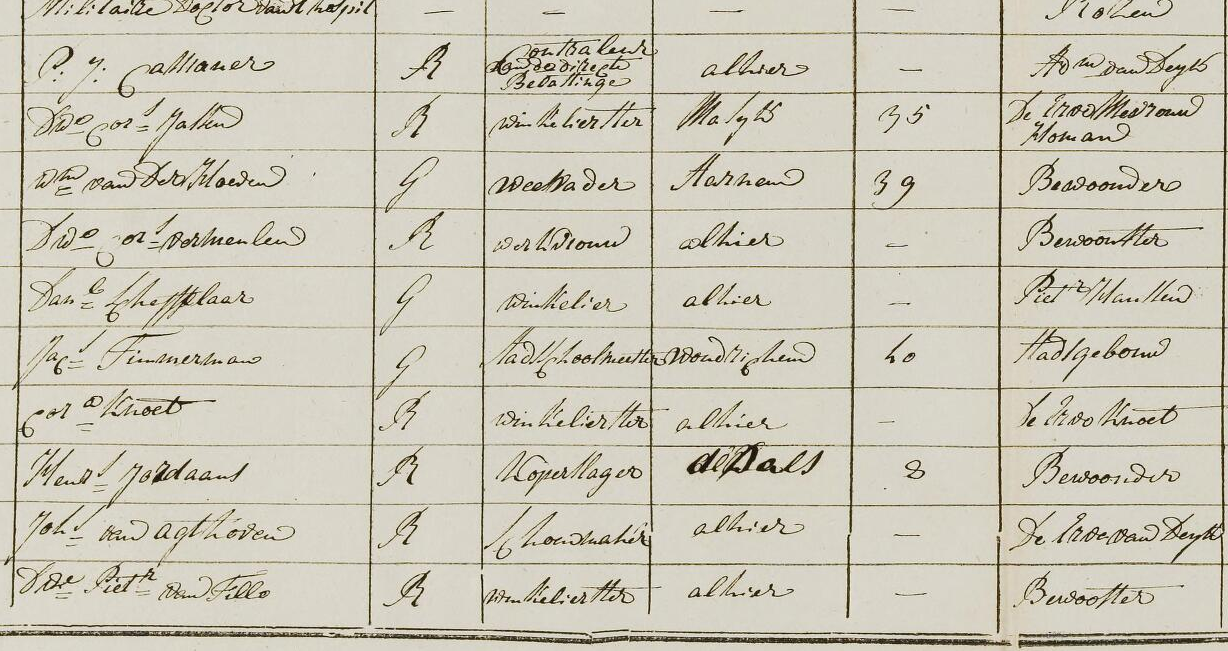 Militaire Doctor van t hospil — — — — Rohen
P: J: Callaner R Contraleur van de directe Belastinge alhier — Adm van Deyk
Dwe Cors Jassen R winkelierster Maseyk 35 De Erve Mevrouw Homand
Wm van Der Hoeden G weesvader Harnem 39 Bewoonder
Dwe Cors vermeulen R werkvrouw alhier — Bewoonster
Danl Scheffelaar G winkelier alhier — Pietr Hanssen
Jacs Timmerman G stadschoolmeester Woudrichem 40 stadsgebouw
Cora Knoet R winkelierster alhier — de Erve Knoet
Henrs Jordaans R Koperslager 8 Bewoonder
Johs van Agthoven R schoenmaker alhier — De Erve van Deyk
Dwe Pietr van Tillo R winkelierster alhier — Bewooster